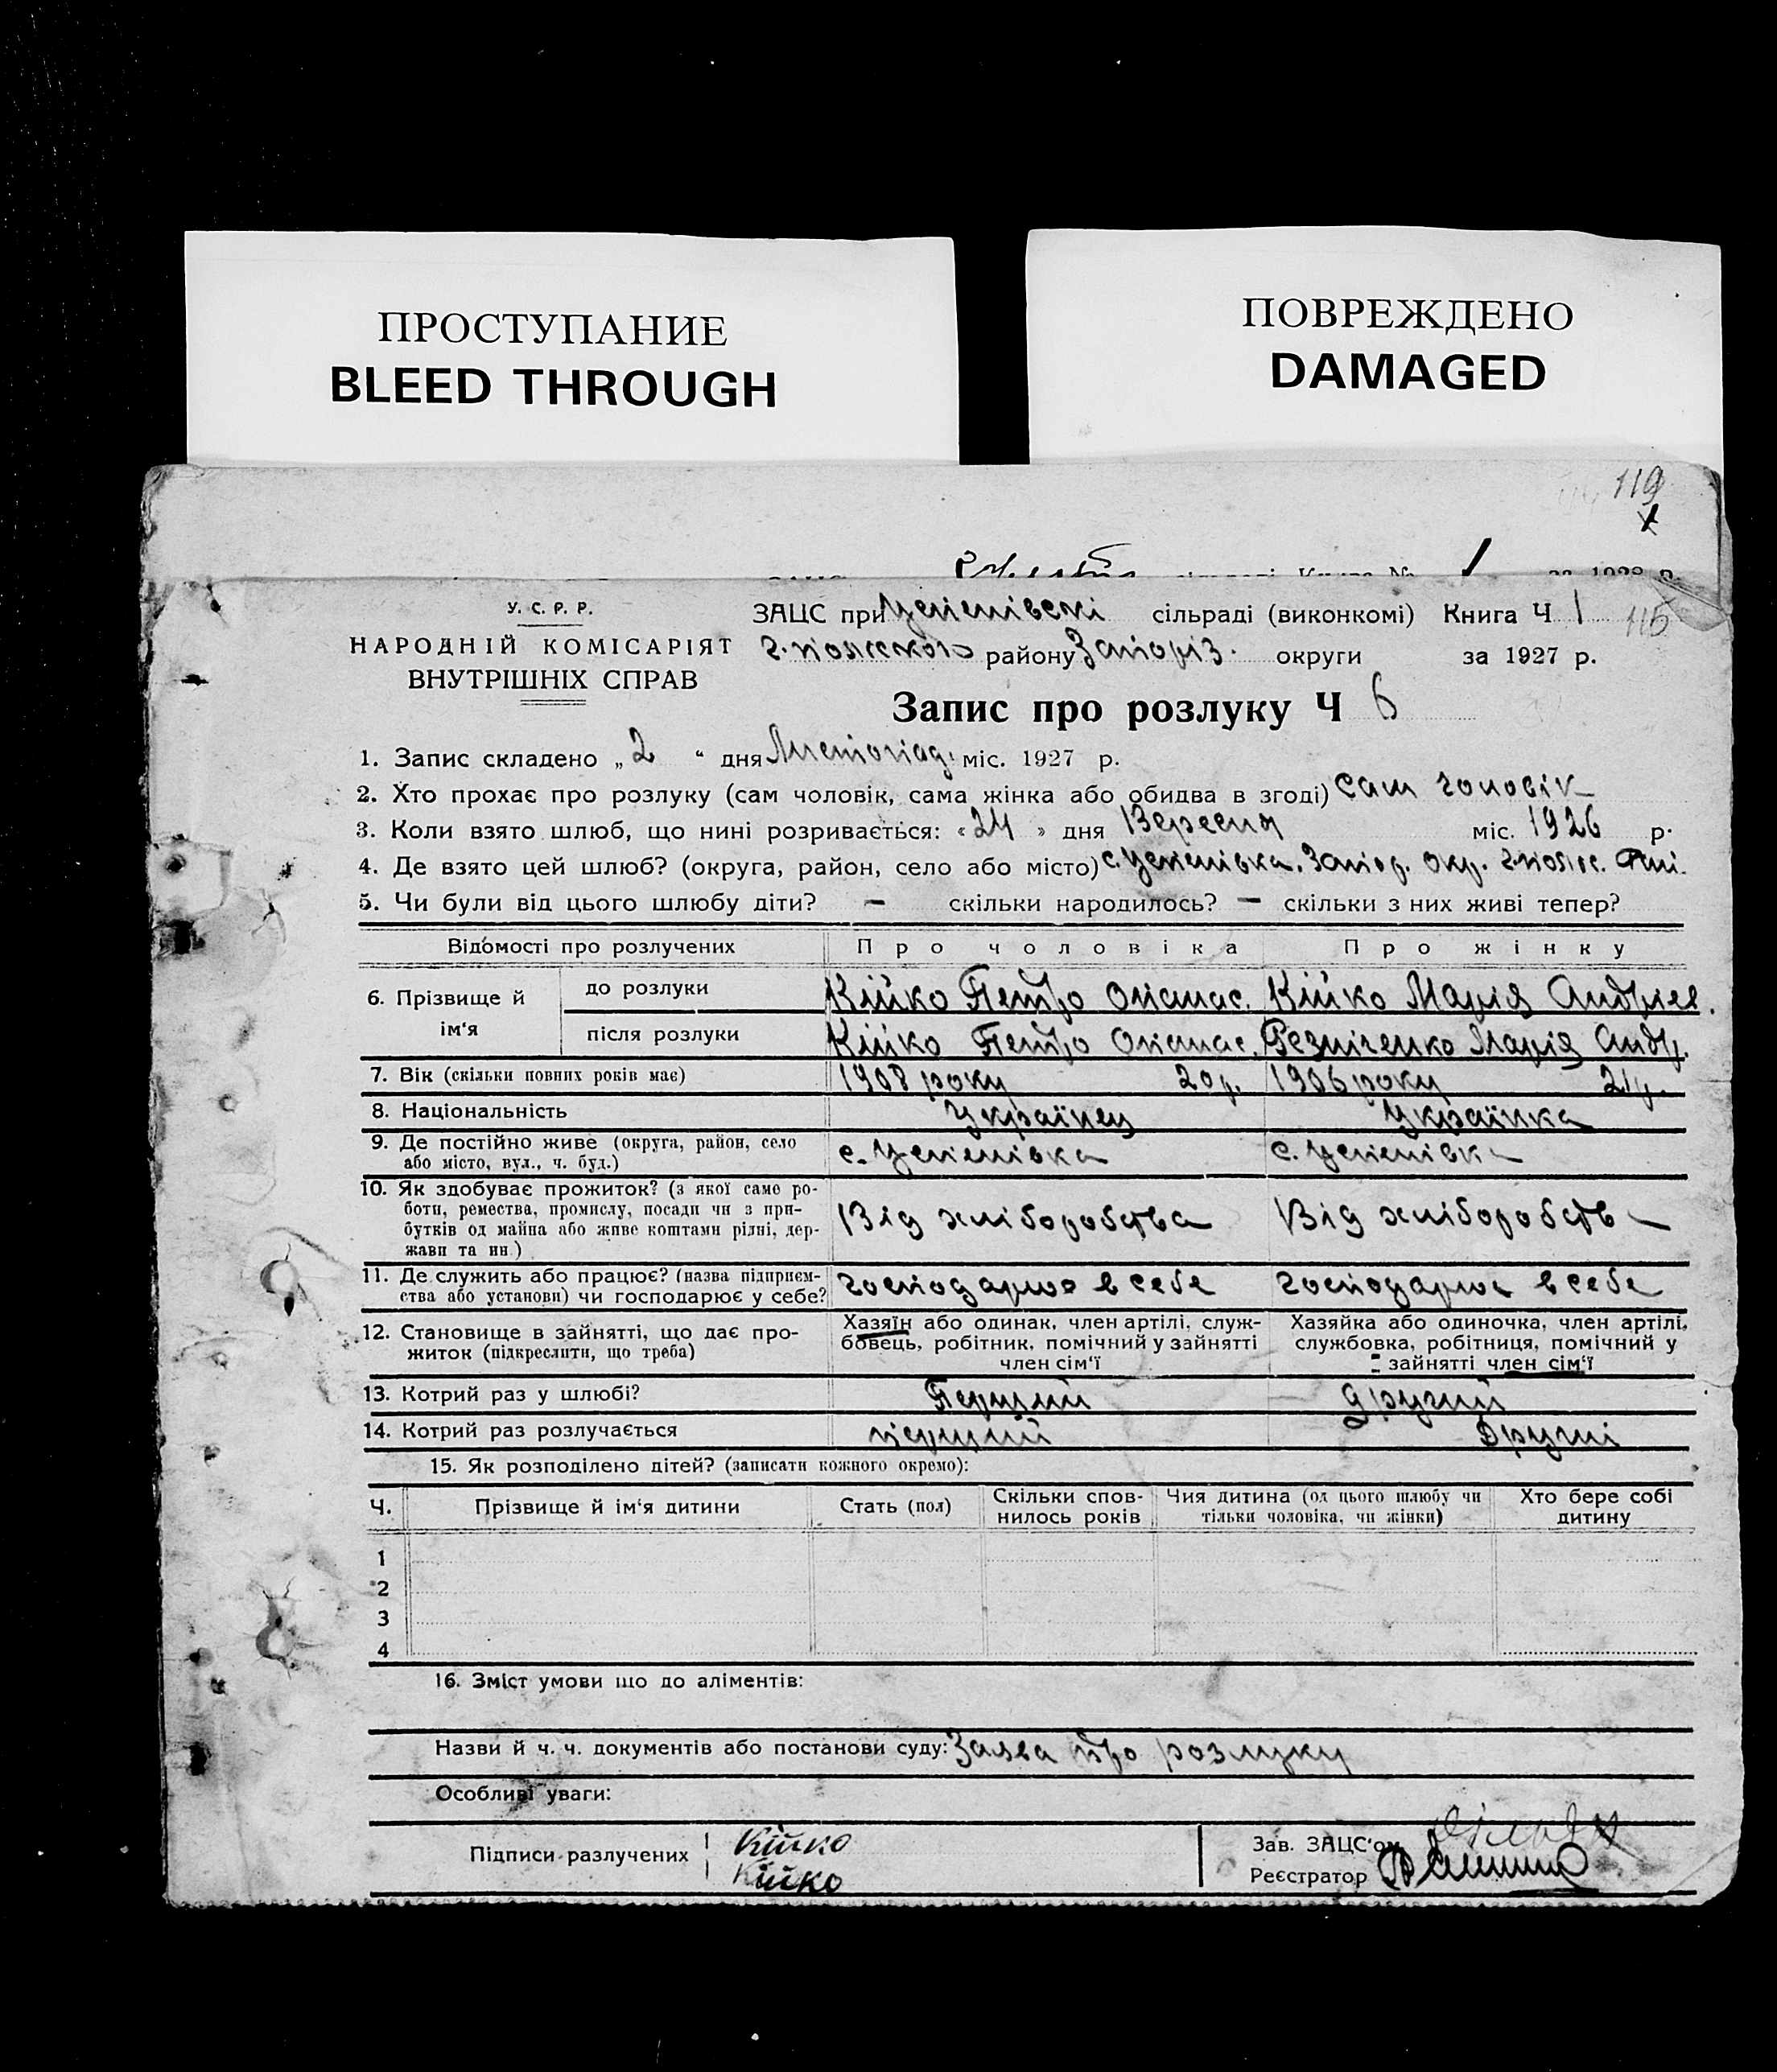 ПРОСТУПАНИЕ
BLEED THROUGH
ПОВРЕЖДЕНО
DAMAGED
119
У. С. Р. Р.
НАРОДНІЙ КОМІСАРІЯТ
ВНУТРІШНІХ СПРАВ
ЗАЦС при Успенівскі сільраді (виконкомі) Книга Ч 1 115
г.-поляського району Запоріз. округи за 1927 р.
Запис про розлуку Ч 6
1. Запис складено „2“ дня Листопад. міс. 1927 р.
2. Хто прохає про розлуку (сам чоловік, сама жінка або обидва в згоді) сам чоловік
3. Коли взято шлюб, що нині розривається: «24» дня Вересня міс. 1926 р.
4. Де взято цей шлюб? (округа, район, село або місто) с. Успенівка, Запор. окр. г.поляс.
5. Чи були від цього шлюбу діти? — скільки народилось? — скільки з них живі тепер?
Відомості про розлучених Про чоловіка Про жінку
6. Прізвище й ім‘я
до розлуки Кійко Петро Опанас. Кійко Марія Андріев.
після розлуки Кійко Петро Опанас. Резніченко Марія Андр.
7. Вік (скільки повних років має) 1908 року 20 р. 1906 року 21 р.
8. Національність Українец Українка
9. Де постійно живе (округа, район, село або місто, вул., ч. буд.) с. Успенівка с. Успенівка
10. Як здобуває прожиток? (з якої саме роботи, ремества, промислу, посади чи з прибутків од майна або живе коштами рідні, держави та ин.) Від хліборобства Від хліборобства
11. Де служить або працює? (назва підприємства або установи) чи господарює у себе? господарює в себе господарює в себе
12. Становище в зайнятті, що дає прожиток (підкреслити, що треба)
Хазяїн або одинак, член артілі, службовець, робітник, помічний у зайнятті член сім‘ї
Хазяйка або одиночка, член артілі, службовка, робітниця, помічний у зайнятті член сім‘ї
13. Котрий раз у шлюбі? Перший другий
14. Котрий раз розлучається перший Другий
15. Як розподілено дітей? (записати кожного окремо):
Ч. Прізвище й ім‘я дитини Стать (пол) Скільки сповнилось років Чия дитина (од цього шлюбу чи тільки чоловіка, чи жінки) Хто бере собі дитину
1
2
3
4
16. Зміст умови що до аліментів:
Назви й ч. ч. документів або постанови суду: Заява про розлуку
Особливі уваги:
Підписи разлучених Кійко
Кійко
Зав. ЗАЦС‘ом
Реєстратор